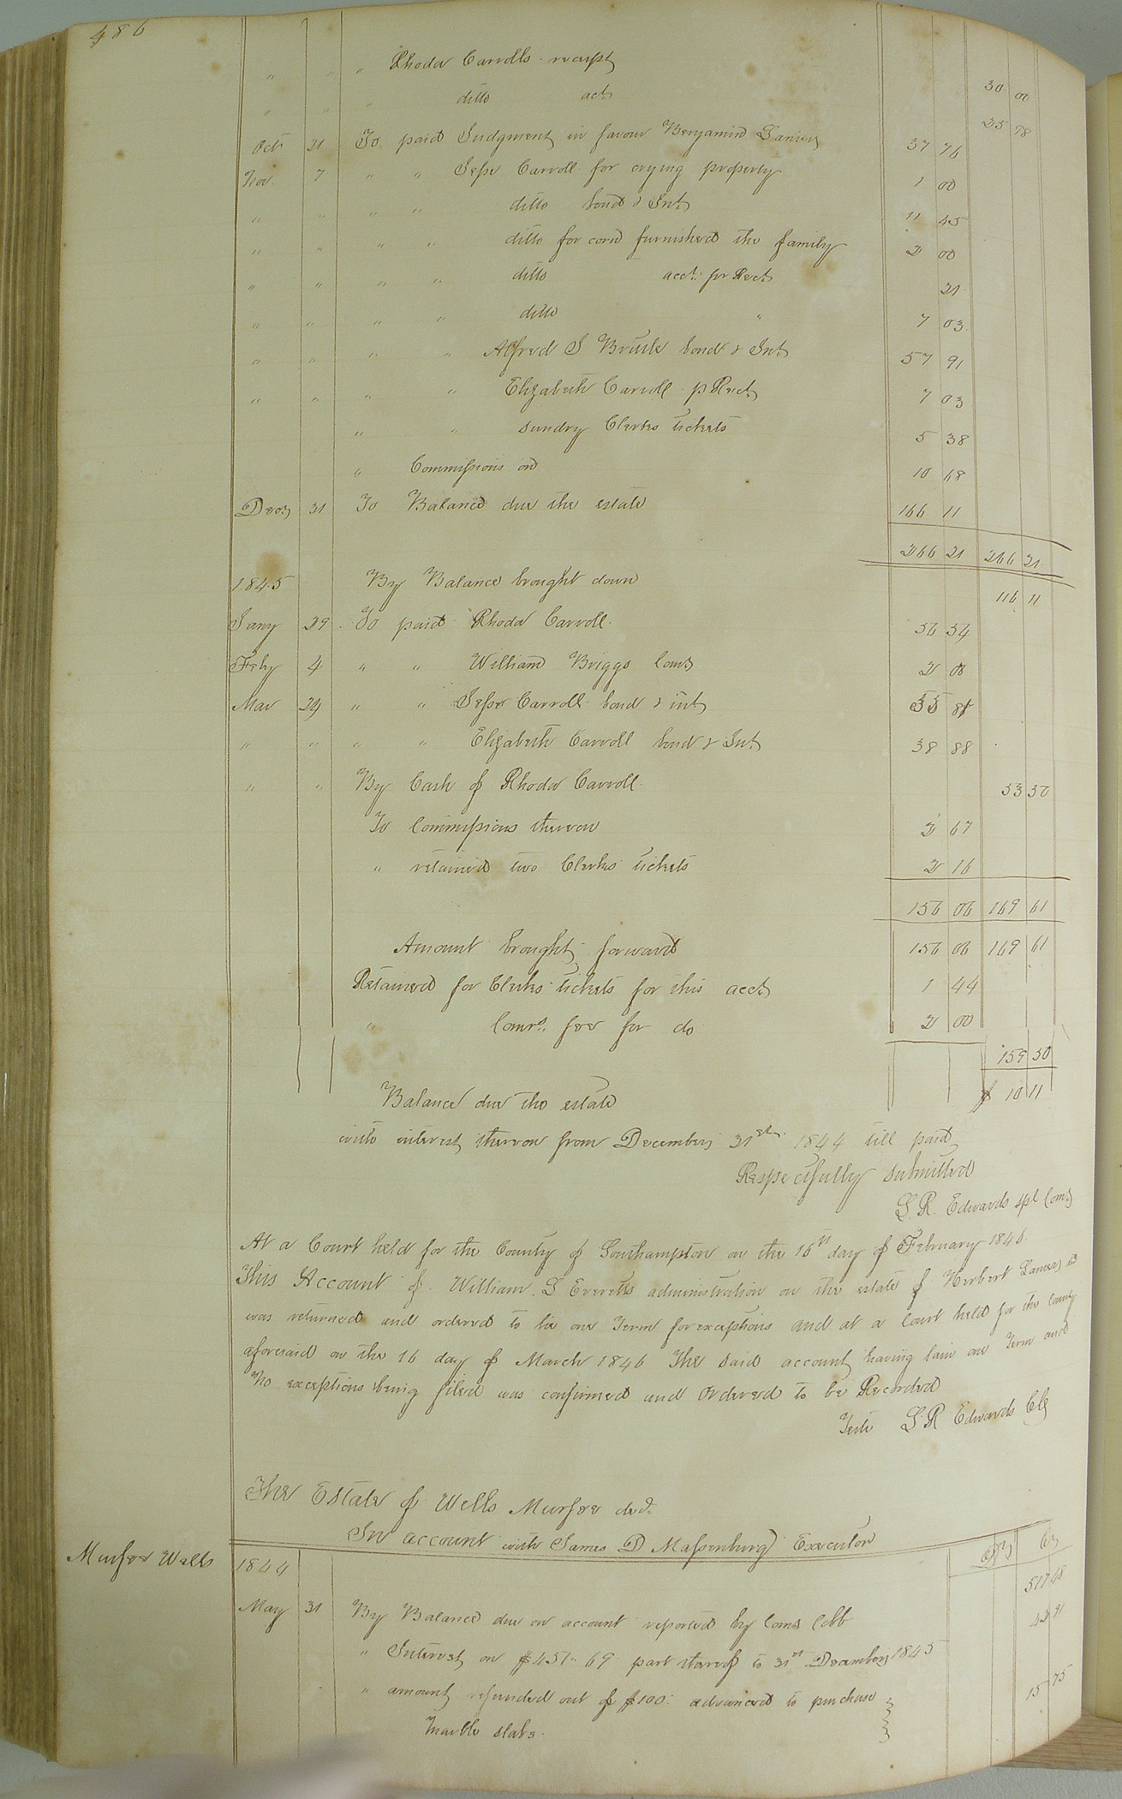 486
" " " Rhoda Carrolls receipt 30 00
" " " ditto act 25 78
Oct 21 To paid Judgment in favour Benjamin Lanier 37 76
Nov 7 " " Jesse Carroll for crying property 1 00
" " " " ditto bond & Int 11 45
" " " " ditto for corn furnished the family 2 00
" " " " ditto acct pr Rect 21
" " " " ditto " 7 03
" " " " Alfred S bond & Int 57 91
" " " " Elizabeth Carroll p Rect 7 03
" " sundry Clerks tickets 5 38
" Commissions on 10 68
Decr 31 To Balance due the estate 166 11
266 21 266 21
1845 By Balance brought down 116 11
Jany 29 To paid Rhoda Carroll 54 54
Feby 4 " " William Briggs Comr 2 00
Mar 29 " " Jesse Carroll bond & int 55 81
" " " " Elizabeth Carroll bond & Int 38 88
" " By Cash of Rhoda Carroll 53 50
To Commissions thereon 2 67
" retained two Clerks tickets 2 16
156 06 169 61
Amount brought forward 156 06 169 61
Retained for Clerks tickets for this acct 1 44
" Comrs. fee for do 2 00
159 50
Balance due the estate $ 10 11
with interest thereon from December 31st 1844 till paid
Respectfully submitted
L R Edwards spl Comr
At a Court held for the County of Southampton on the 16th day of February 1846
This Account of William D Everetts administration on the estate of Herbert Lanier
was returned and ordered to lie one Term for exceptions and at a Court held for the County
aforesaid on the 16 day of March 1846 The said account having lain one Term and
No exceptions being filed was confirmed and Ordered to be Recorded
Teste L R Edwards Clk
The Estate of Wells Murfee decd.
In account with James D Massenburg Executor
Murfee Wells 1844 Dr Cr
May 31 By Balance due on account reported by Comr Cobb 517 48
" Interest on $451.69 part thereof to 31st December 1845
" amount refunded out of $100. advanced to purchase 15 75
Marble slabs.